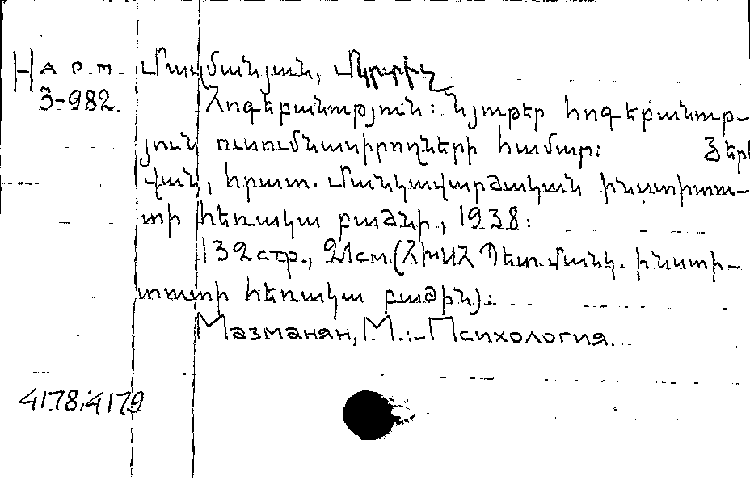 Н а р. т. Մազմանյան, Մկրտիչ
3-982. Հոգեբանություն: Նյութեր հոգեբանութ-
յուն ուսումնասիրողների համար: Յերև
վան, հրատ. Մանկավարձական ինստիտու-
տի հեռակա բաժնի, 1938:
132 стр., 21 см. (ՀԽՍՀ Պետ. մանկ. ինստի-
տուտի հեռակա բաժին).
Мазманян, М.:-Психология.
4178;4179